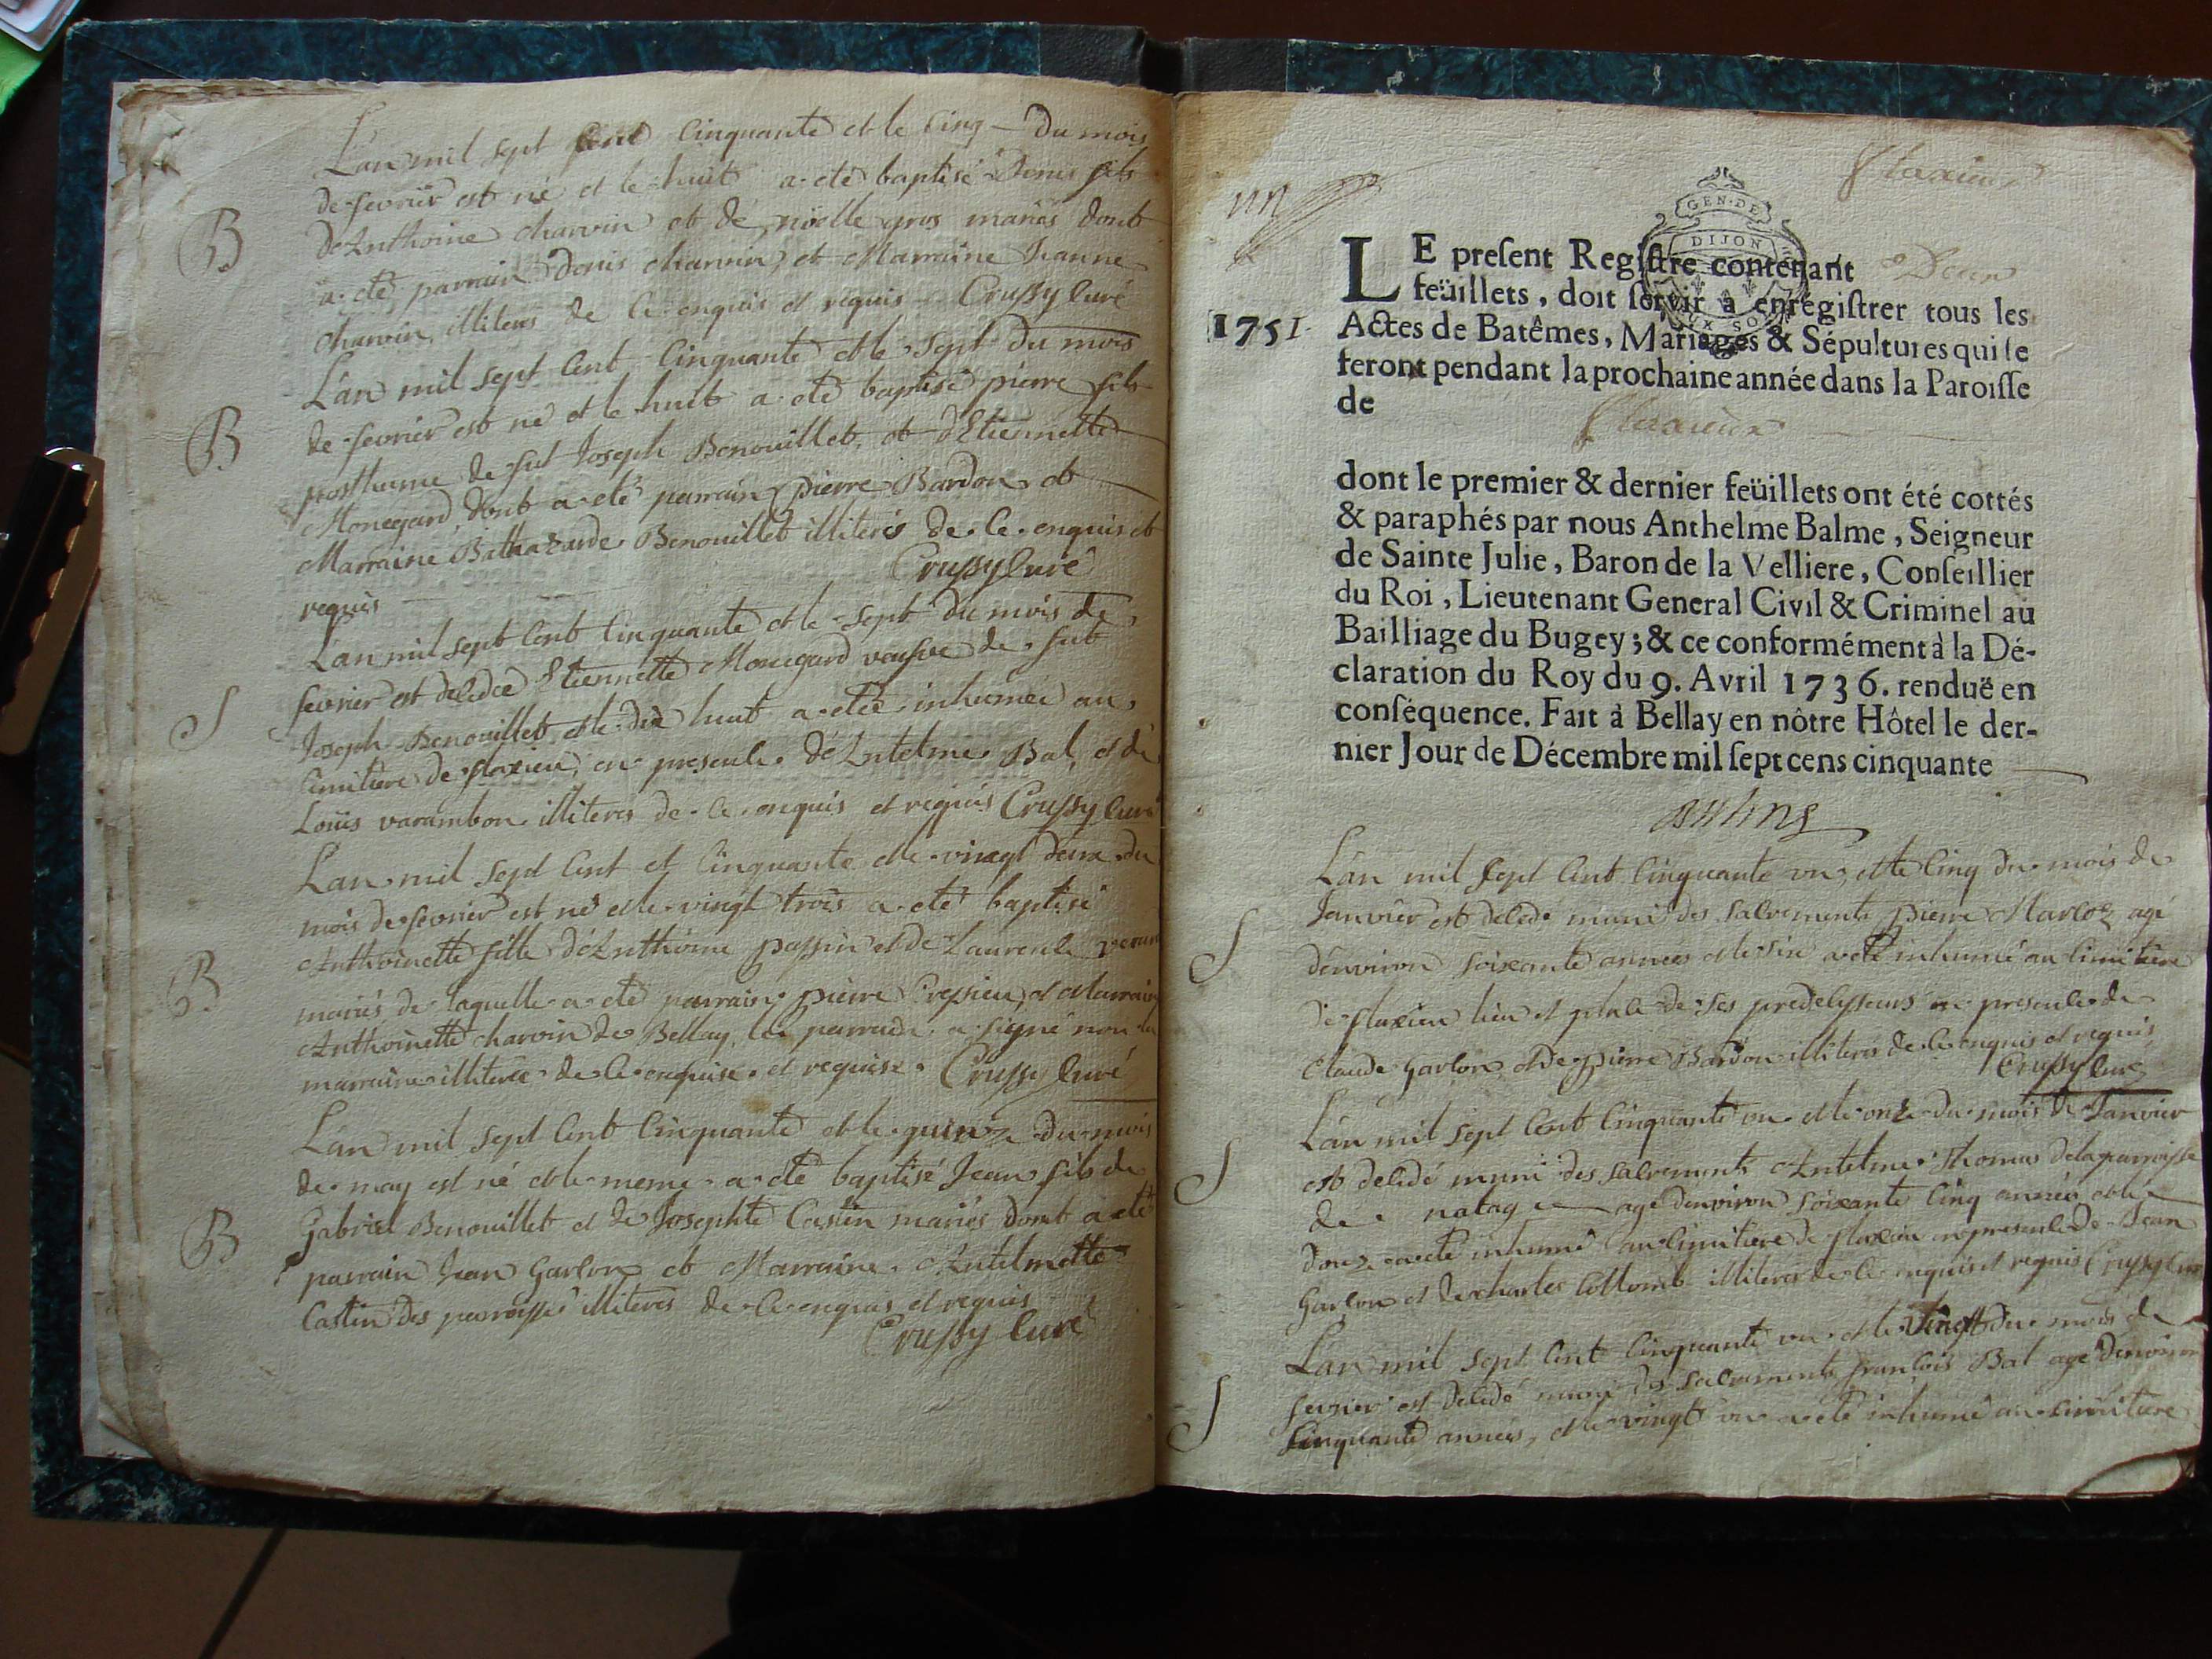 L'an mil sept cent Cinquante et le Cinq - du mois
de fevrier est né et le huit a eté baptisé Denis fils
d'Anthoine charvin et de noëlle gros mariés dont
a eté parrain Denis charvin, et Marraine Jeanne
charvin, illiteres de Ce enquis et requis Crussy Curé
B
L'an mil sept Cent Cinquante et le sept du mois
de fevrier est né et le huit a eté baptisé pierre fils
posthume de fut Joseph Benouillet, et d'Etiennette
Monegard, dont a eté parrain pierre Bardon et
Marraine Balthazarde Benouillet illiterés de Ce enquis et
requis Crussy Curé
B
L'an mil sept Cent Cinquante et le sept du mois de
fevrier est decedée Etiennette Monegard veufve de fut
Joseph Benouillet et le dix huit a etée inhumée au
Cimitiere de flaxieu, en presence d'Antelme Bal, et de
Louis varambon illiteres de Ce enquis et requis Crussy Curé
S
L'an mil sept Cent et Cinquante et le vingt deux du
mois de fevrier est né et le vingt trois a eté baptisé
Anthoinette fille d'Anthoine passin et de Laurence
mariés de laquelle a eté parrain pierre Cressieu, et Marraine
Anthoinette charvin de Bellay, le parrain a signé non la
marraine illiterée de Ce enquise et requise. Crussy Curé
B
L'an mil sept Cent Cinquante et le quinze du mois
de may est né et le meme a eté baptisé Jean fils de
Gabriel Benouillet et de Josephte Castin mariés dont a eté
parrain Jean Garlon et Marraine Antelmette
Castin des parroisse illiteres de Ce enquis et requis
Crussy Curé
B
un
flaxieu
GEN·DE
DIJON
UX SO
LE preſent Regiſtre contenant Deux
feüillets, doit ſervir à enregiſtrer tous les
1751 Actes de Batêmes, Mariages & Sépultures qui ſe
feront pendant la prochaine année dans la Paroiſſe
de flaxieux
dont le premier & dernier feüillets ont été cottés
& paraphés par nous Anthelme Balme, Seigneur
de Sainte Julie, Baron de la Velliere, Conſeillier
du Roi, Lieutenant General Civil & Criminel au
Bailliage du Bugey; & ce conformément à la Dé-
claration du Roy du 9. Avril 1736. renduë en
conſéquence. Fait à Bellay en nôtre Hôtel le der-
nier Jour de Décembre mil ſept cens cinquante
L'an mil sept Cent Cinquante un, et le Cinq du mois de
Janvier est decedé muni des Sacrements pierre Marcoz agé
d'environ soixante années et le six a eté inhumé au Cimitiere
de flaxieu lieu et place de ses predecesseurs en presence de
Claude Garlon et de pierre Bardon illiterés de Ce enquis et requis
Crussy Curé
S
L'an mil sept Cent Cinquante un et le onze du mois de Janvier
est decedé muni des Sacrements Antelme Thomas de la parroisse
de natage agé d'environ soixante Cinq années et le
douze a eté inhumé au Cimitiere de flaxieu en presence de Jean
Garlon et de charles Collomb illiteres de Ce enquis et requis Crussy Curé
S
L'an mil sept Cent Cinquante un et le vingt du mois de
fevrier est decedé muni des Sacrements françois Bal agé d'environ
Cinquante années, et le vingt un a eté inhumé au Cimitiere
S